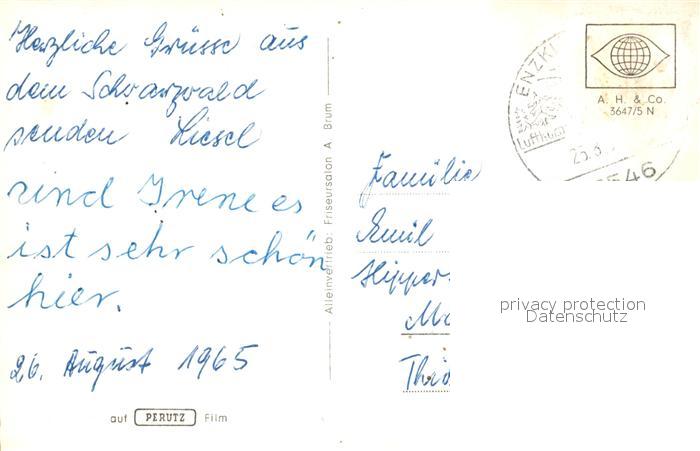 Herzliche Grüsse aus
dem Schwarzwald
senden Liesel
und Irene es
ist sehr schön
hier.
26. August 1965
auf PERUTZ Film
Alleinvertrieb: Friseursalon A. Brum
A. H. & Co.
3647/5 N
ENZKL
Luftkur
25.8.
546
Familie
Emil
Hipper
privacy protection
Datenschutz